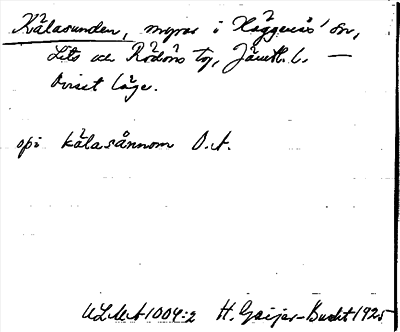 Kälasunden, myrar i Häggenås sn,
Lits och Rödöns tg, Jämtl. l. —
Ovisst läge.
opi kälasånnom D. A.
ULMA 1004:2 H. Geijer-Bucht 1925